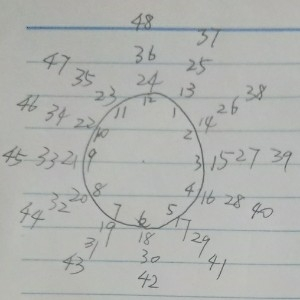 48
36
24
12
37
25
13
1
38
26
14
2
39
27
15
3
40
28
16
4
41
29
17
5
42
30
18
6
43
31
19
7
44
32
20
8
45
33
21
9
46
34
22
10
47
35
23
11